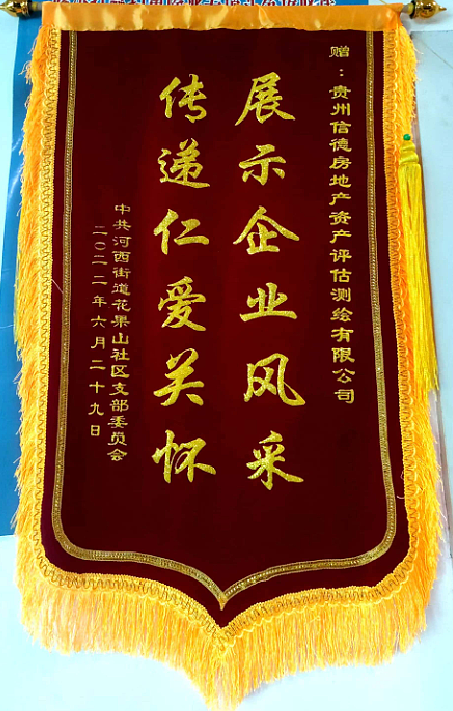 赠：贵州信德房地产资产评估测绘有限公司
展示企业风采
传递仁爱关怀
中共河西街道花果山社区支部委员会
二〇二二年六月二十九日